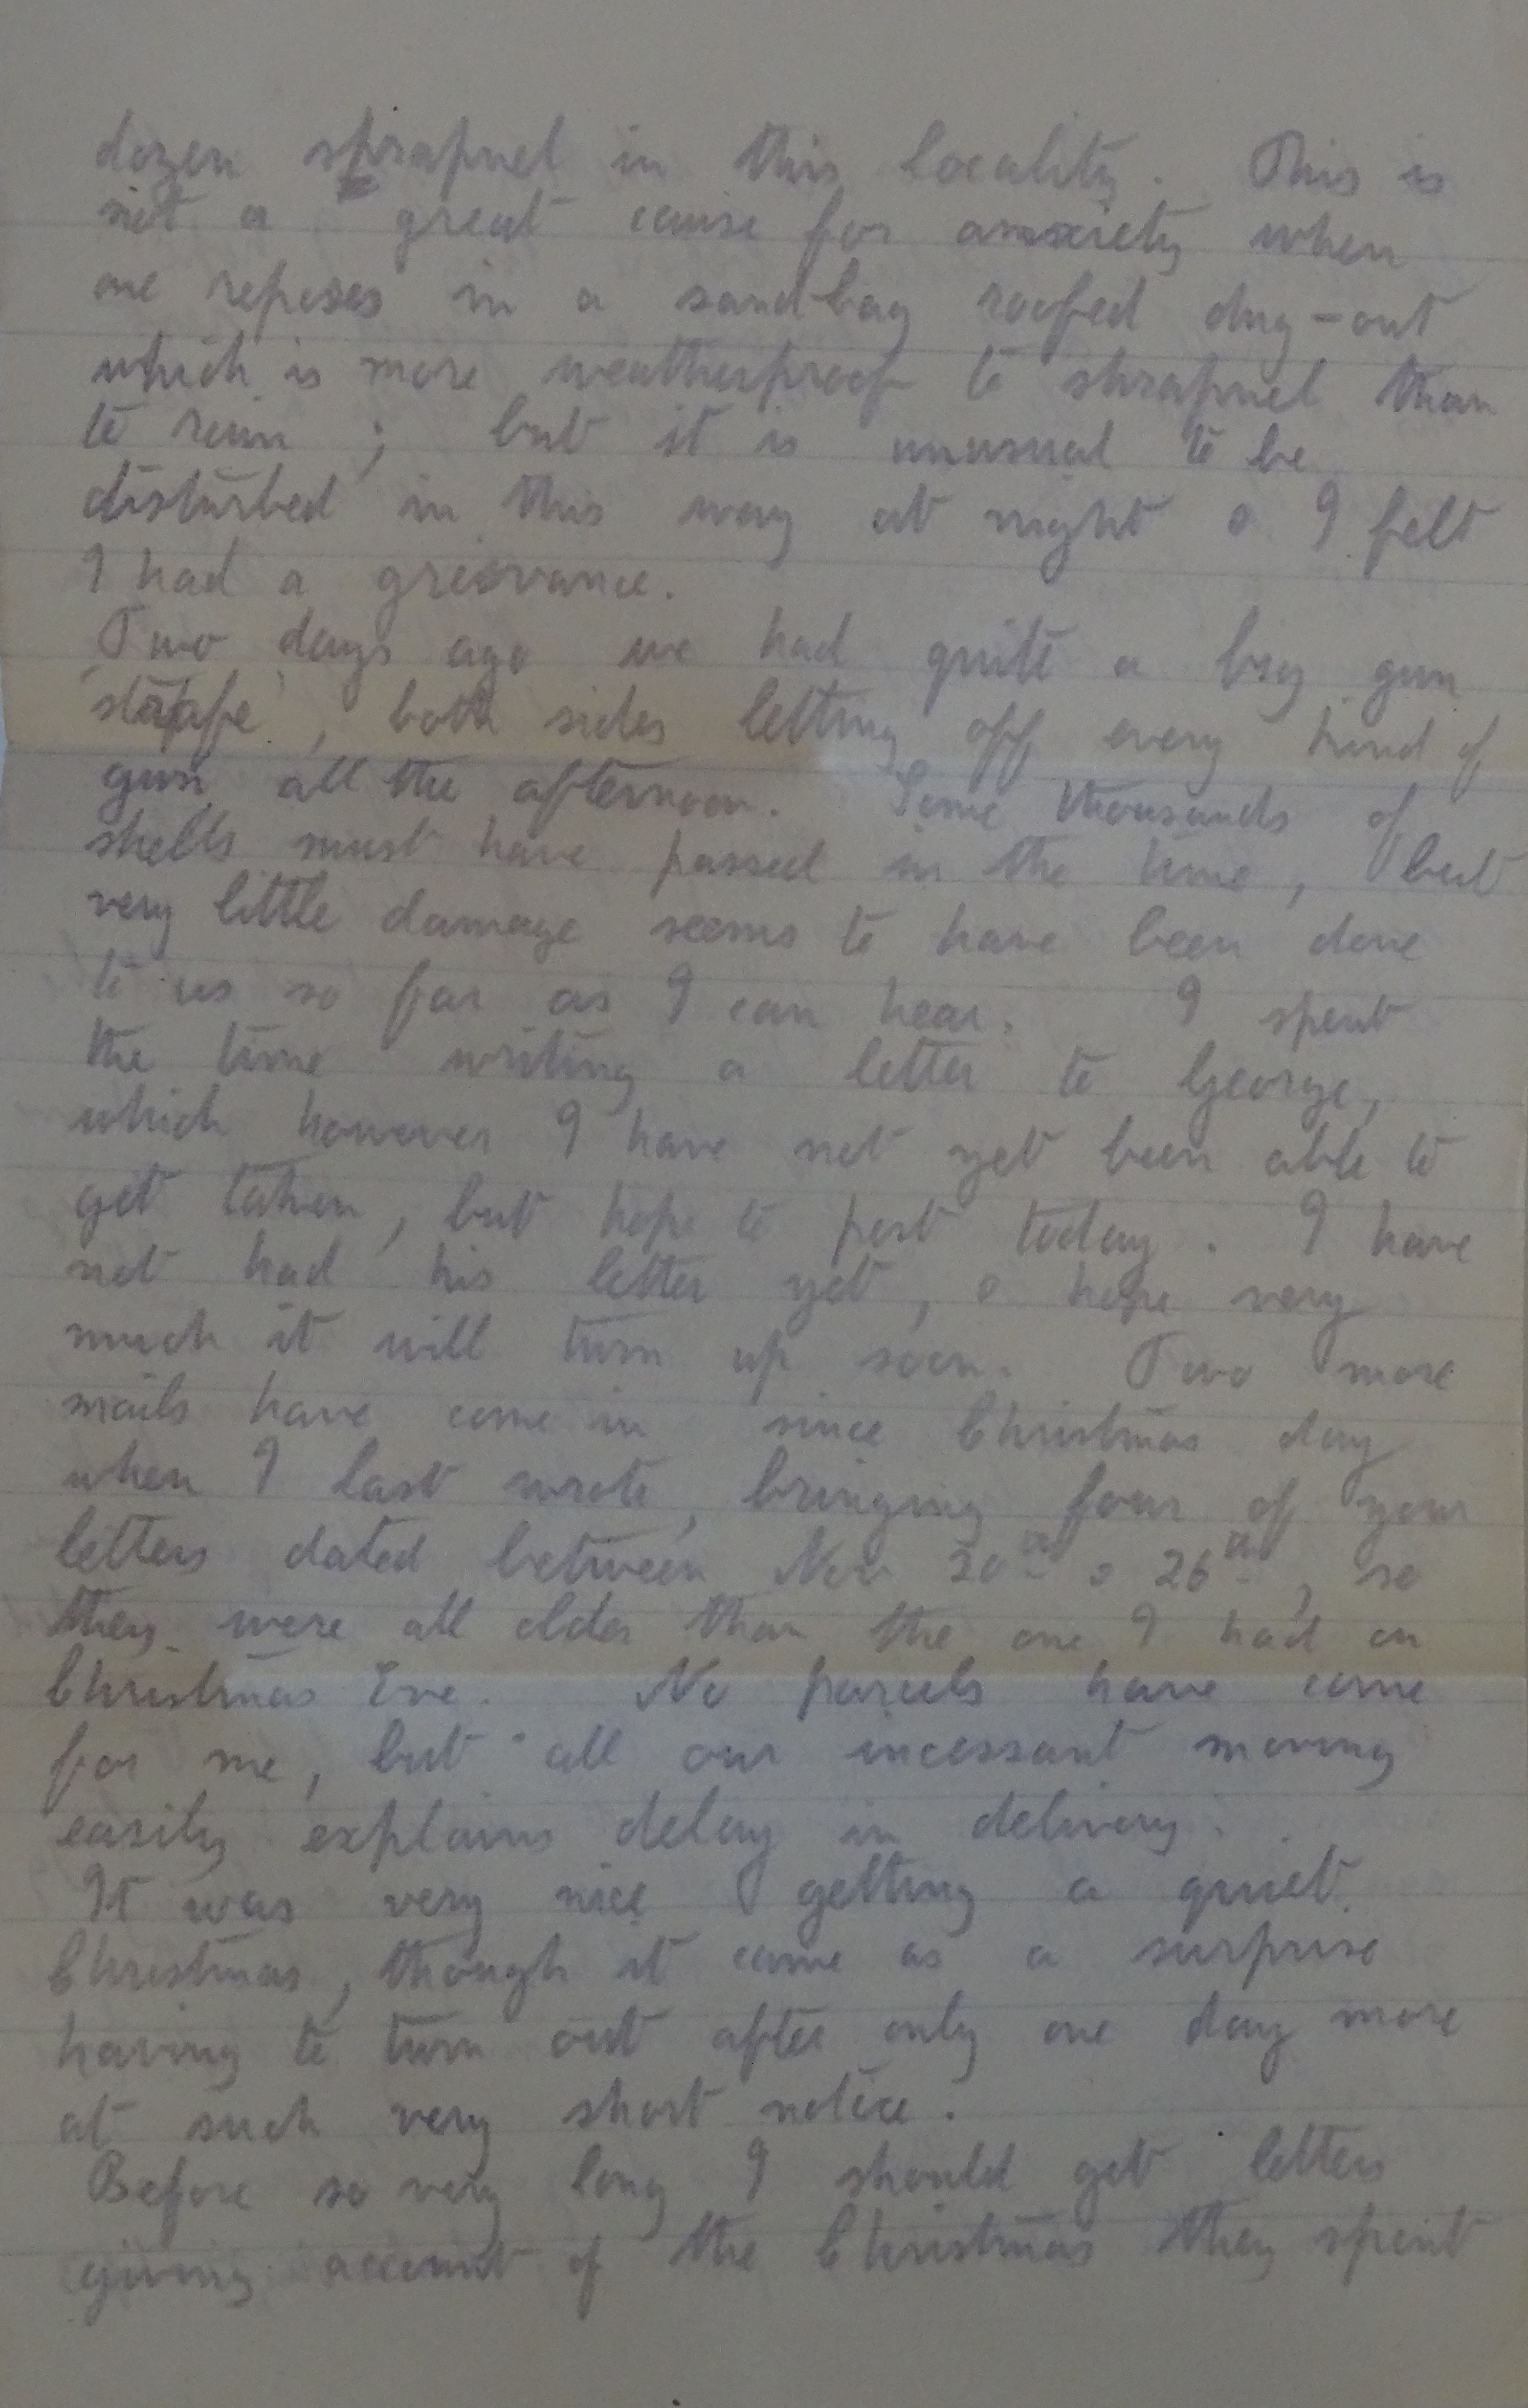 dozen shrapnel in this locality. This is
not a great cause for anxiety when
one reposes in a sandbag roofed dug-out
which is more weatherproof to shrapnel than
to rain ; but it is unusual to be
disturbed in this way at night & I felt
I had a grievance.
Two days ago we had quite a big gun
'straffe', both sides letting off every kind of
gun all the afternoon. Some thousands of
shells must have passed in the time, but
very little damage seems to have been done
to us so far as I can hear. I spent
the time writing a letter to George,
which however I have not yet been able to
get taken, but hope to post today. I have
not had his letter yet, & hope very
much it will turn up soon. Two more
mails have come in since Christmas day
when I last wrote, bringing four of your
letters dated between Nov 20th & 26th, so
they were all older than the one I had on
Christmas Eve. No parcels have come
for me, but all our incessant moving
easily explains delay in delivery.
It was very nice getting a quiet
Christmas, though it came as a surprise
having to turn out after only one day more
at such very short notice.
Before so very long I should get letters
giving account of the Christmas they spent